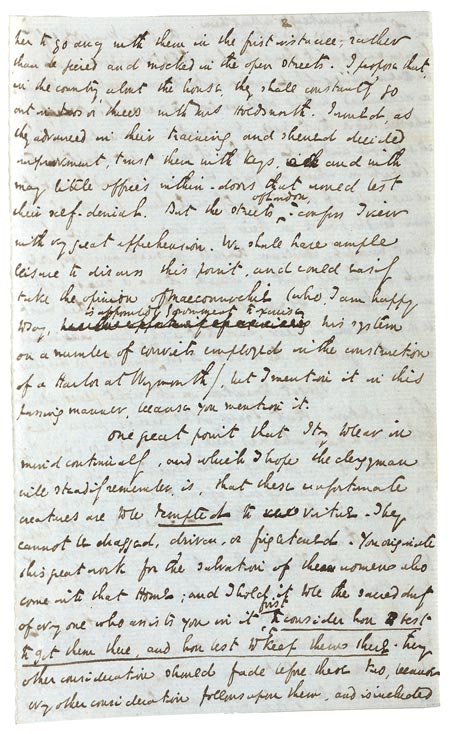 ther to go away with them in the first instance, rather
than be peered and mocked in the open streets. I propose that
in the country about the house, they should constantly go
out in twos or threes with Mrs Holdsworth. I would, as
they advanced in their training and shewed decided
improvement, trust them with keys, and with
many little offices within-doors that would test
their self-denial. But the streets of London, I confess I view
with very great apprehension. We shall have ample
leisure to discuss this point, and could easily
take the opinion of Maconnochie (who I am happy
to say, is appointed by Government to exercise his system
on a number of convicts employed in the construction
of a Harbor at Weymouth), but I mention it in this
passing manner, because you mention it.
One great point that I try to bear in
mind continually, and which I hope the clergyman
will steadily remember, is, that these unfortunate
creatures are to be tempted to virtue. They
cannot be dragged, driven, or frightened. You originate
this great work for the salvation of the women who
come into that Home; and I hold it to be the sacred duty
of every one who assists you in it, first to consider how best
to get them there, and how best to keep them there. Every
other consideration should fade before these two, because
every other consideration follows upon them, and is included